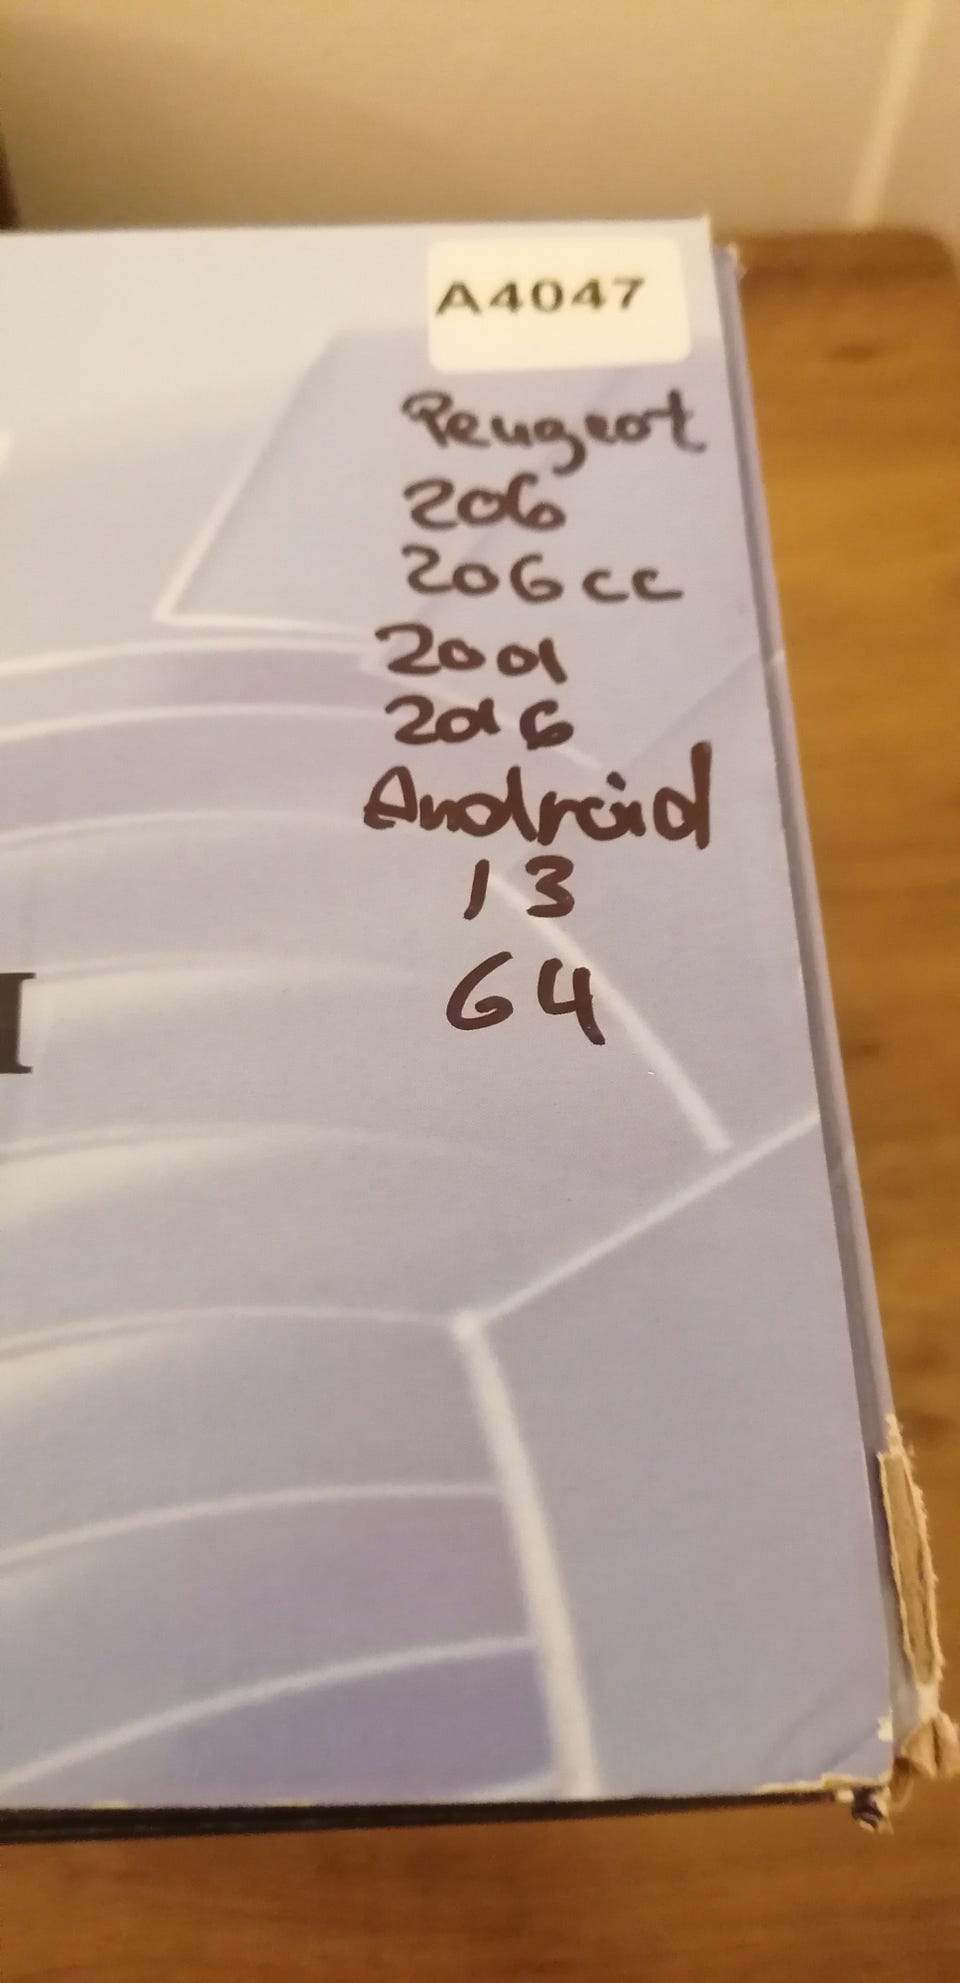 A4047
Peugeot
206
206cc
2001
2016
Android
13
64